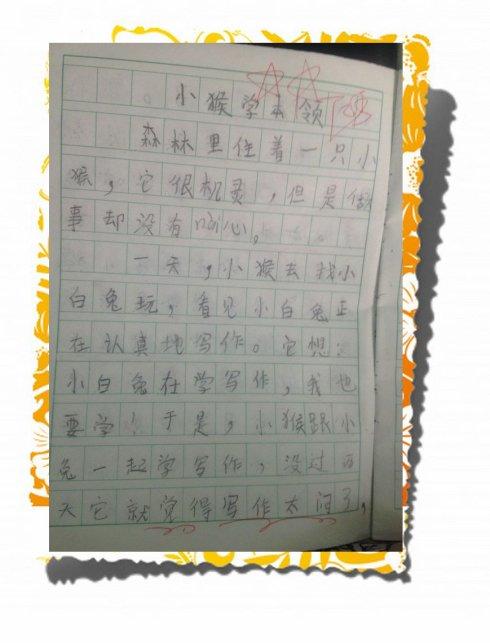 小猴学本领
森林里住着一只小
猴，它很机灵，但是做
事却没有耐心。
一天，小猴去找小
白兔玩，看见小白兔正
在认真地写作。它想：
小白兔在学写作，我也
要学！于是，小猴跟小
兔一起学写作，没过两
天它就觉得写作太闷了，